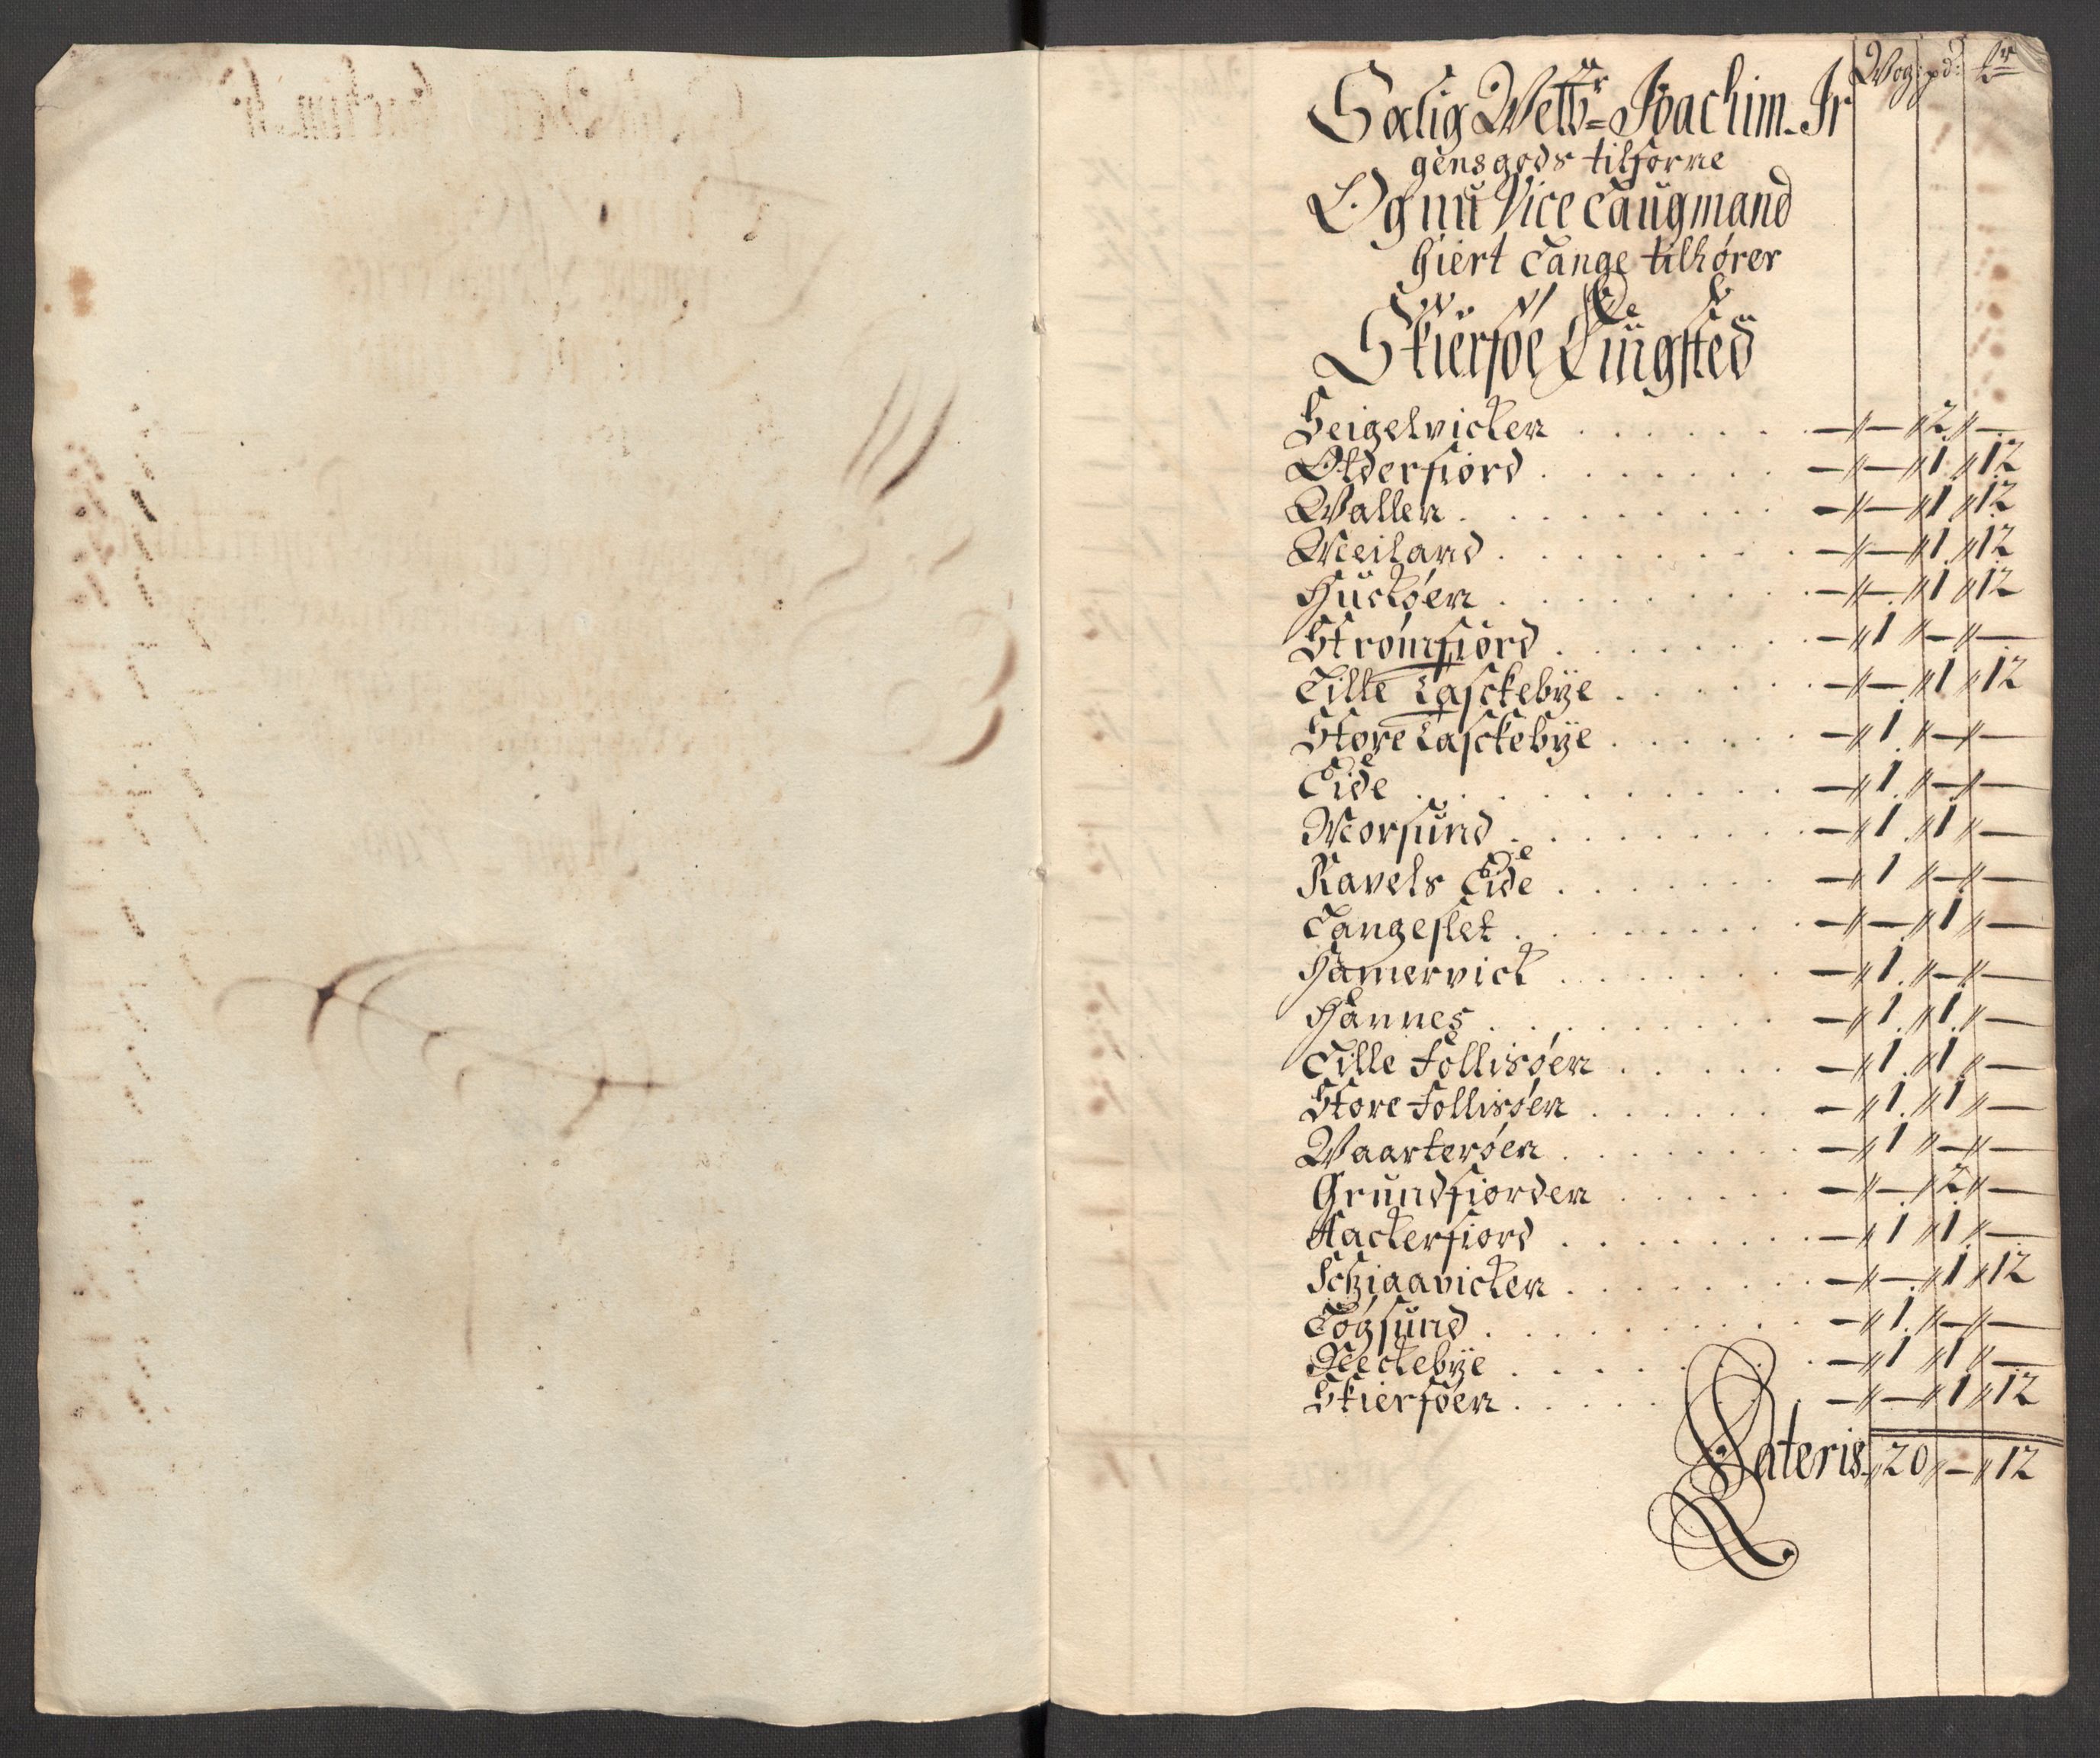 Wog: pd: 
Salig Welb:r Joachim Jr
gens gods tilforne
Og nu Vice Laugmand
Giert Lange tilhører
Skiersøe Tingsted
Seigelvicken . . . . . . — // — // 2 // —
Olderfiord . . . . . . . — // — // 1 // 12
Wallen . . . . . . . . . — // — // 1 // 12
Meiland . . . . . . . . — // — // 1 // 12
Huckøen . . . . . . . . — // — // 1 // 12
Strømfiord . . . . . . . — // 1 // — // —
Lille Tasckebÿe . . . . . . — // — // 1 // 12
Store Tasckebÿe . . . . . . — // 1 // — // —
Eide . . . . . . . . . . — // 1 // — // —
Morsund . . . . . . . . — // 1 // 1 // —
Ravels Eide . . . . . . . — // 1 // — // —
Langeslet . . . . . . . . — // — // 1 // —
Hamervick . . . . . . . — // 1 // — // —
Hannes . . . . . . . . . — // 1 // 1 // —
Lille Follisøen . . . . . — // 1 // 1 // —
Store Follisøen . . . . . . — // 1 // 1 // —
Waarterøen . . . . . . . — // 1 // — // —
Grundfiorden . . . . . . — // — // 2 // —
Kackerfiord . . . . . . . — // 1 // 1 // —
Schiaavicken . . . . . . . — // — // 1 // 12
Løgsund . . . . . . . . — // 1 // — // —
Meckebÿe . . . . . . . . — // 1 // 1 // —
Skiersøen . . . . . . . . — // — // 1 // 12
Lateris // 20 // — // 12